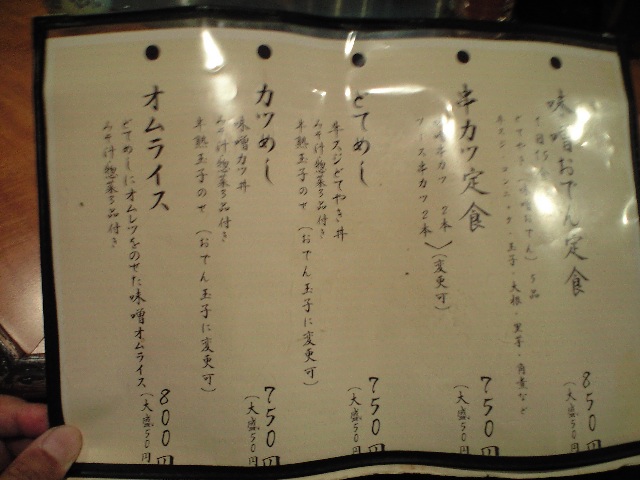 味噌おでん定食
どてやき・味噌おでん）5品
牛スジ・コンニャク・玉子・大根・里芋・角煮など
850円
（大盛50円
串カツ定食
串カツ 2本
ソース串カツ 2本
（変更可）
750円
（大盛50円
どてめし
牛スジどてやき丼
みそ汁惣菜3品付き
半熟玉子のせ（おでん玉子に変更可）
750円
（大盛50円
カツめし
味噌カツ丼
みそ汁惣菜3品付き
半熟玉子のせ（おでん玉子に変更可）
750円
（大盛50円
オムライス
どてめしにオムレツをのせた味噌オムライス
みそ汁惣菜3品付き
800円
（大盛50円